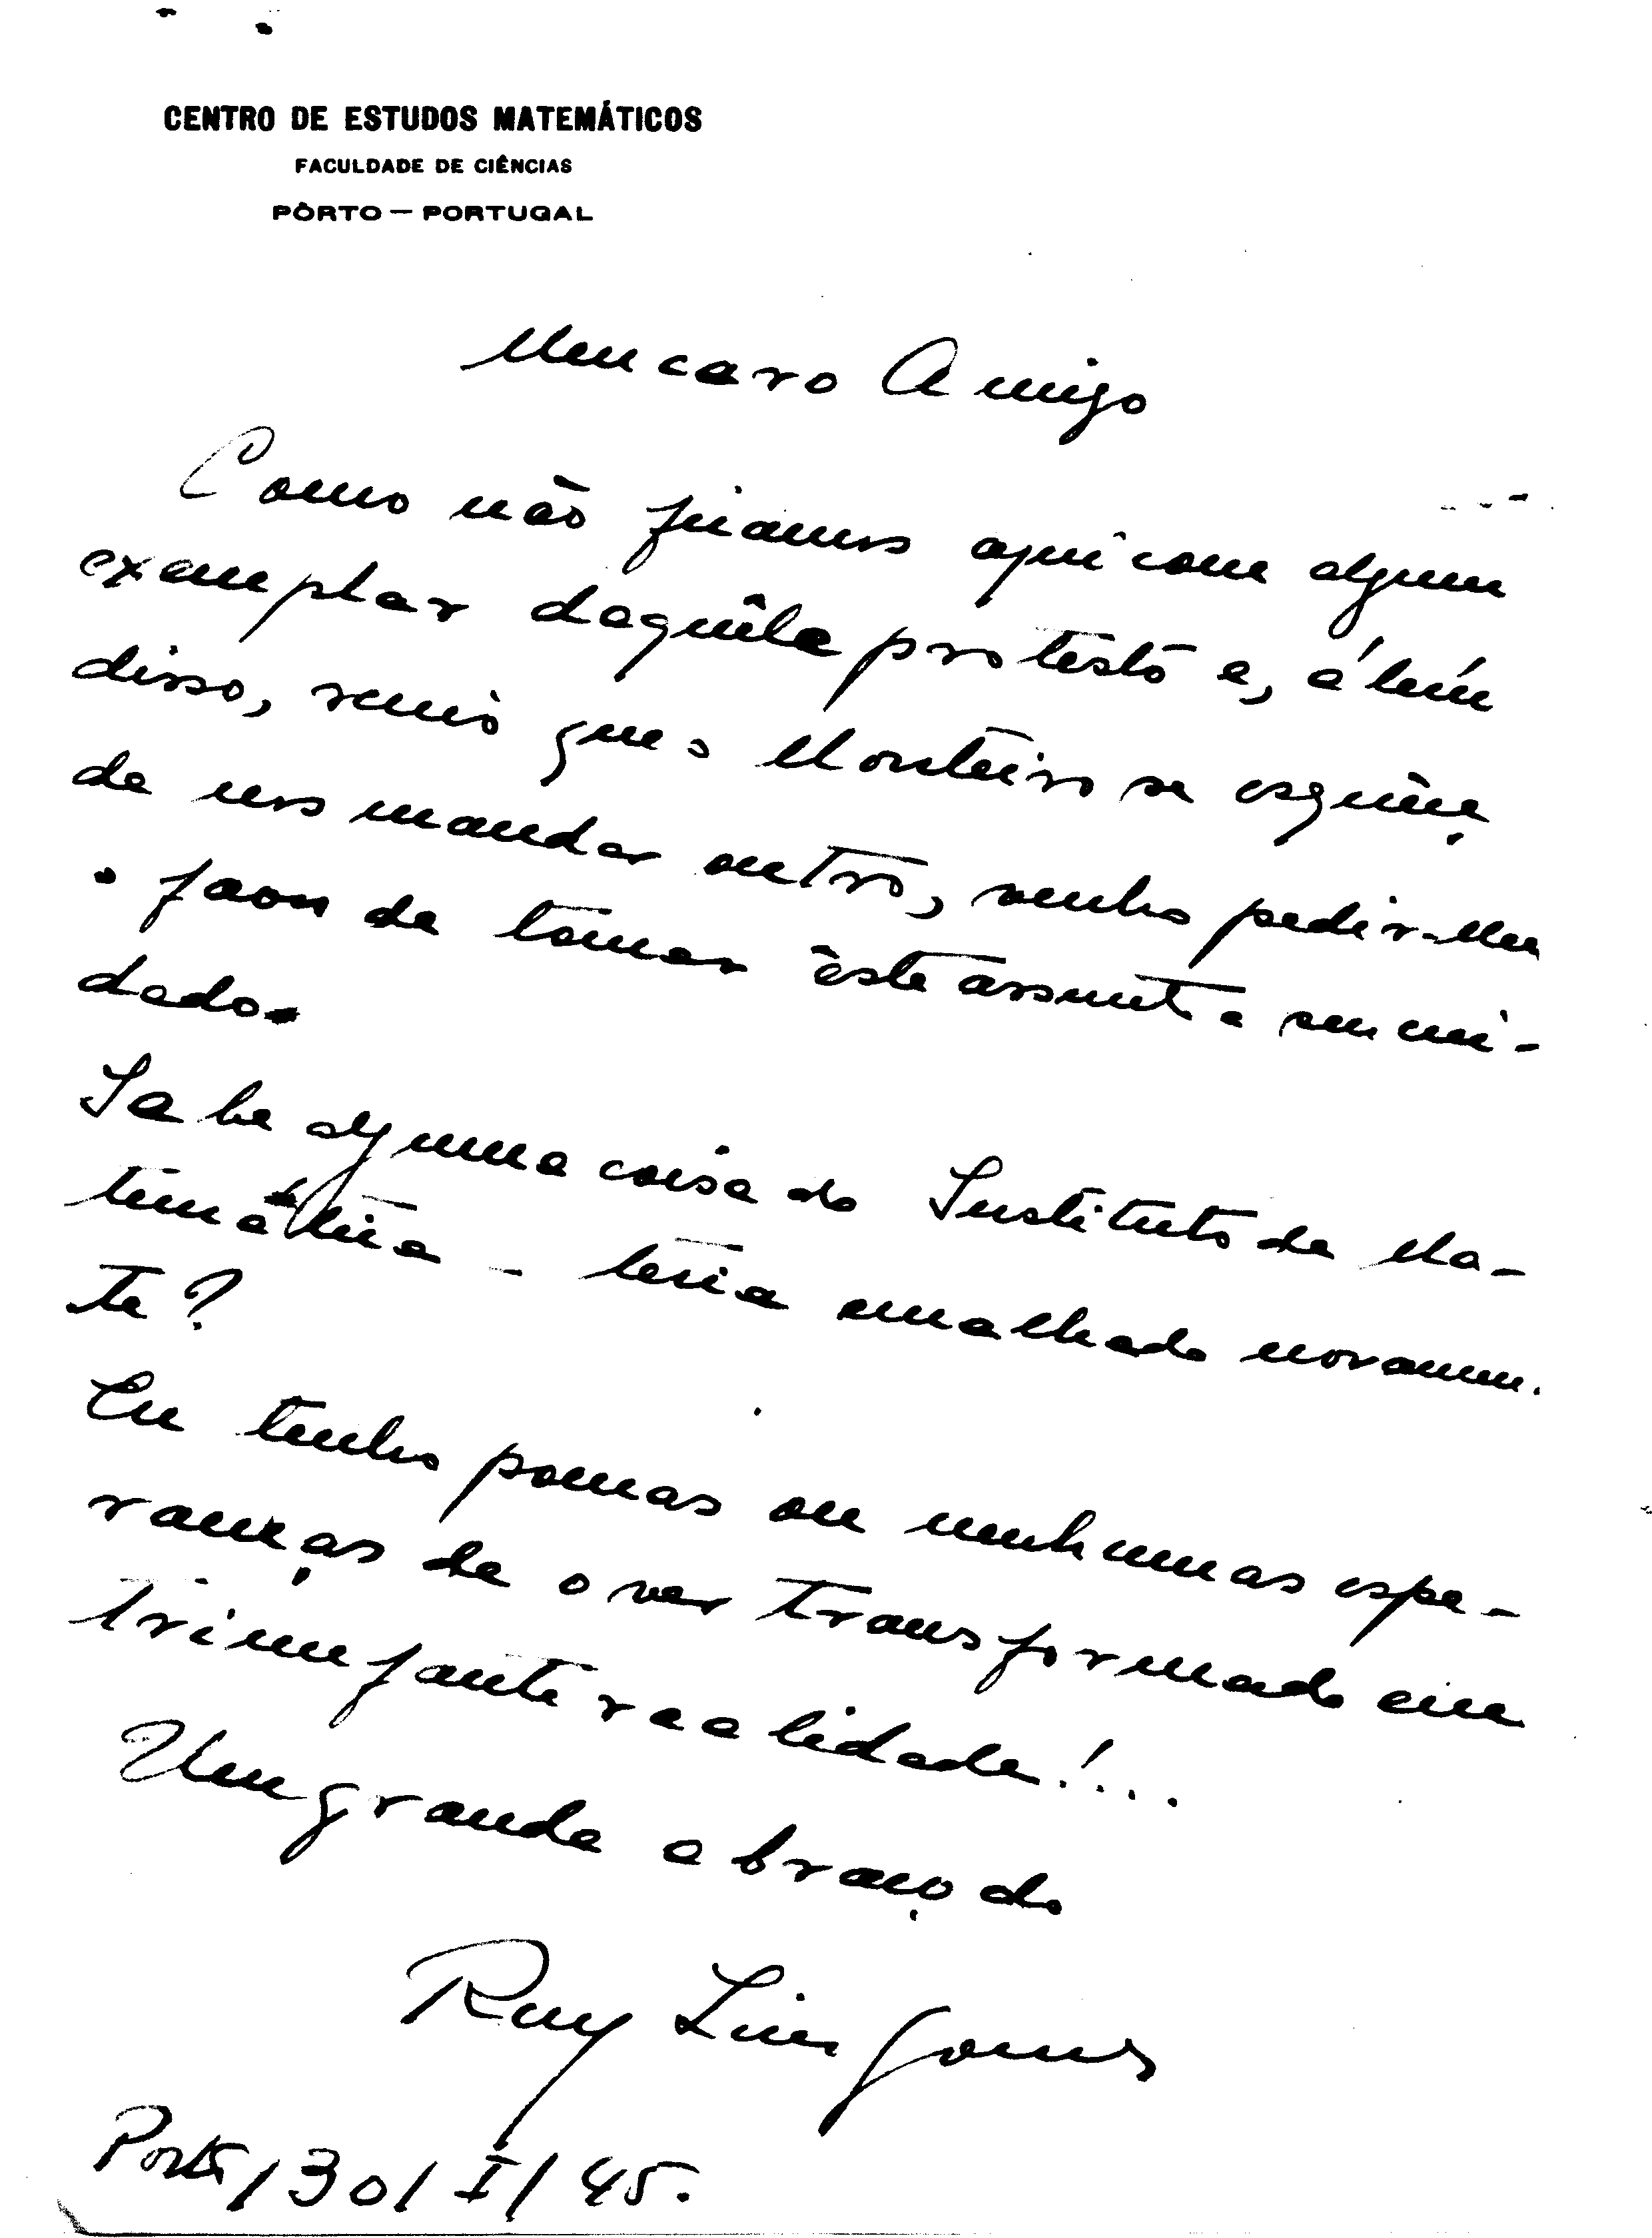 CENTRO DE ESTUDOS MATEMÁTICOS
FACULDADE DE CIÊNCIAS
PÔRTO — PORTUGAL
Meu caro Amigo
Como não ficamos aqui com algum
exemplar daquêle protesto e, álém
disso, receio que o Monteiro se esqueça
de nos mandar outro, venho pedir-lhe
o favor de tomar êste assunto a seu cui-
dado.
Sabe alguma coisa do Instituto de Ma-
temática - teria encalhado novamen-
te?
Eu tenho poucas ou nenhumas espe-
ranças de o ver transformado em
triunfante realidade!...
Um grande abraço do
Ruy Luis Gomes
Porto/30/I/45.